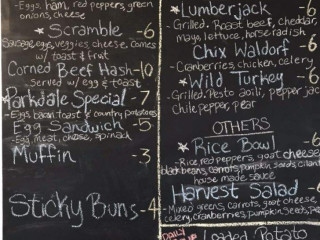 -Eggs, ham, red peppers, green
onions, cheese
*Scramble -6
Sausage, eggs, veggies, cheese. Comes
w/ toast & fruit
Corned Beef Hash-10
-Served w/ egg & toast
*Parkdale Special -7
-Eggs, bacon, toast & country potatoes
Egg Sandwich -5
-Egg, meat, cheese, spinach
Muffin -3
Sticky Buns-4
*Lumberjack -6
-Grilled. Roast beef, cheddar,
mayo, lettuce, horseradish
Chix Waldorf -6
-Cranberries, chicken, celery
*Wild Turkey -6
-Grilled. Pesto aoili, pepper jack
Chile pepper, pear
OTHERS
*Rice Bowl -6
-Rice, red peppers, goat cheese
black beans, carrots, pumpkin seeds,
house made sauce
Harvest Salad -6
-Mixed greens, carrots, goat cheese
celery, cranberries, pumpkin seeds,
DAILY
Loaded Potato